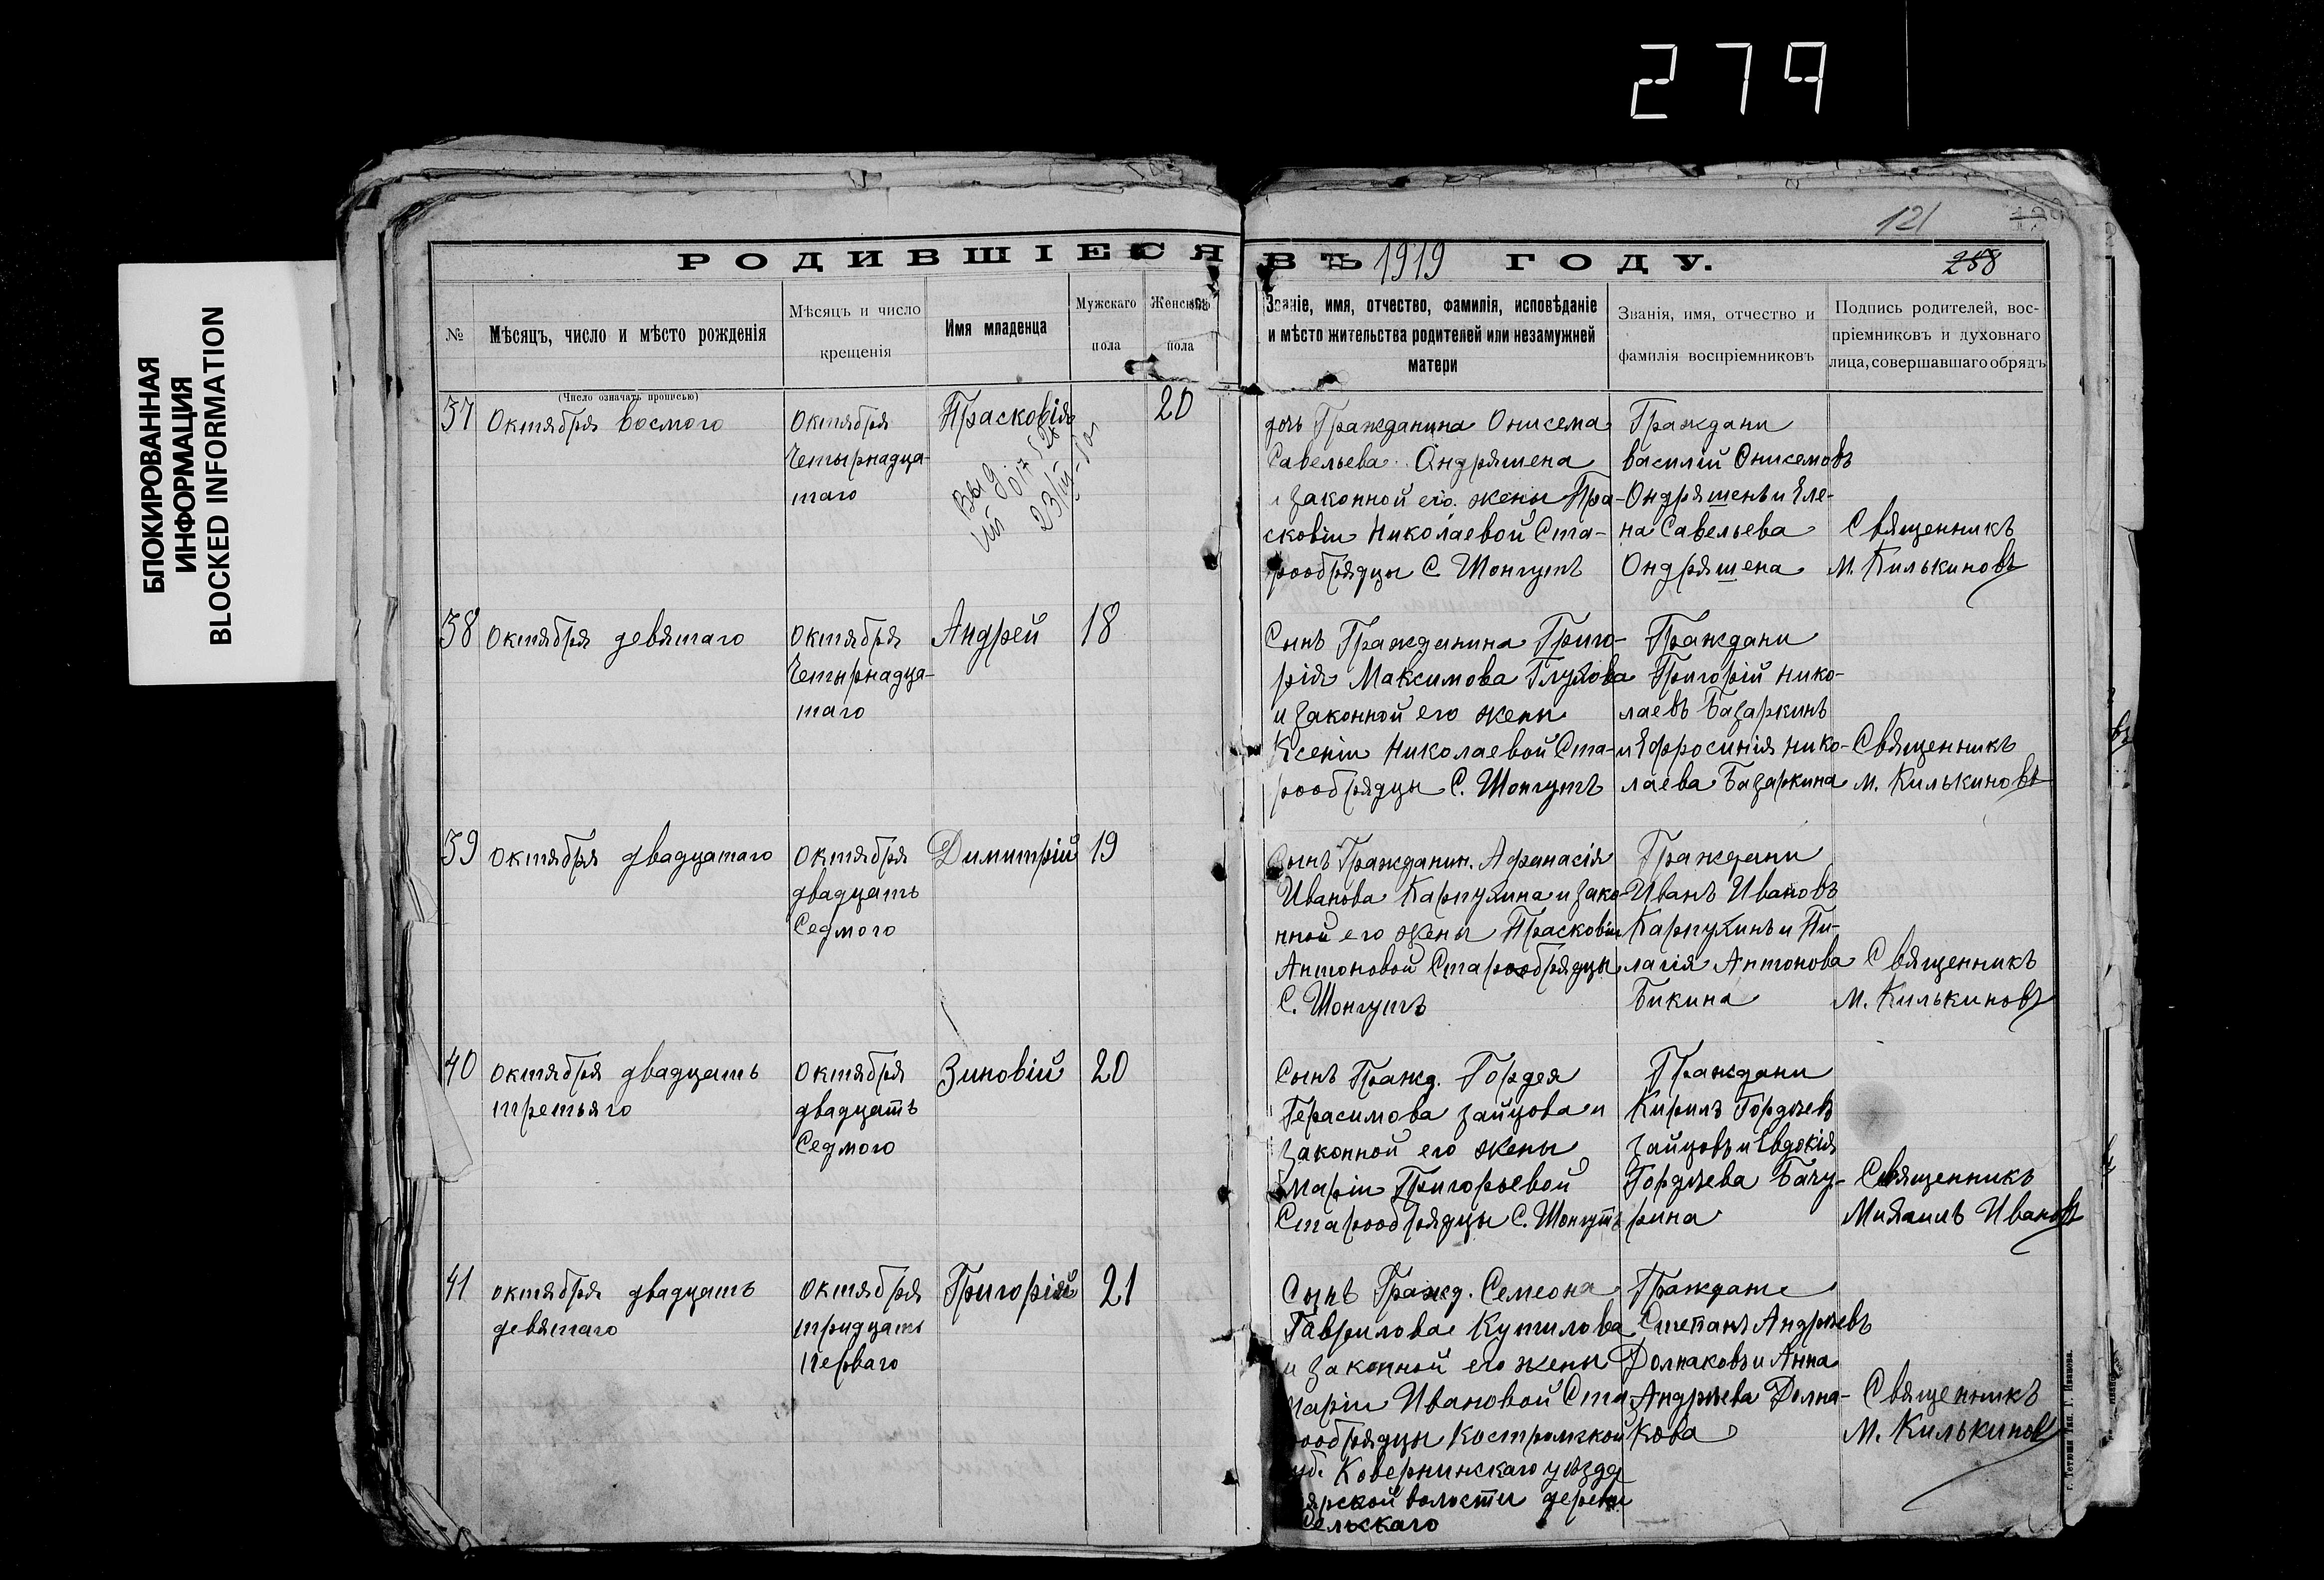 279
БЛОКИРОВАННАЯ
ИНФОРМАЦИЯ
BLOCKED INFORMATION
121
258
РОДИВШІЕСЯ ВЪ 1919 ГОДУ.
№
Мѣсяцъ, число и мѣсто рожденія
(Число означать прописью)
Мѣсяцъ и число
крещенія
Имя младенца
Мужскаго
пола
Женскаго
пола
Званіе, имя, отчество, фамилія, исповѣданіе
и мѣсто жительства родителей или незамужней
матери
Званія, имя, отчество и
фамилія воспріемниковъ
Подпись родителей, вос-
пріемниковъ и духовнаго
лица, совершавшаго обрядъ
37
Октября восмого
Октября
Четырнадца-
таго
Прасковія
20
дочь Гражданина Онисема
Савельева Ондряшена
и законной его жены Пра-
сковіи Николаевой Ста-
рообрядцы С Шонгутъ
Граждани
Василій Онисемовъ
Ондряшенъ и Еле-
на Савельева
Ондряшена
Священникъ
М. Килькиновъ
38
Октября девятаго
Октября
Четырнадца-
таго
Андрей
18
Сынъ Гражданина Григо-
рія Максимова Глухова
и законной его жены
Ксеніи Николаевой Ста-
рообрядцы С. Шонгутъ
Граждани
Григорій Нико-
лаевъ Базаркинъ
и Ефросинія Нико-
лаева Базаркина
Священникъ
М. Килькиновъ
39
Октября двадцатаго
Октября
двадцать
Седмого
Димитрій
19
Сынъ Гражданин. Афанасія
Иванова Карпухина и зако-
нной его жены Прасковіи
Антоновой Старообрядцы
С. Шонгутъ
Граждани
Иванъ Ивановъ
Карпухинъ и Пи-
лагія Антонова
Бикина
Священникъ
М. Килькиновъ
40
Октября двадцать
третьяго
Октября
двадцать
Седмого
Зиновій
20
Сынъ Гражд. Гордея
Герасимова Зайцова и
законной его жены
Маріи Григорьевой
Старообрядцы С. Шонгутъ
Граждани
Кирилъ Гордѣевъ
Зайцовъ и Евдокія
Гордѣева Бачу-
рина
Священникъ
Михаилъ Ивановъ
41
октября двадцать
девятаго
октября
тридцать
перваго
Григорій
21
Сынъ Гражд. Семеона
Гаврилова Кутилова
и законной его жены
Маріи Ивановой Ста
рообрядцы Костромской
губ. Ковернинскаго уѣзда
волости дерев
Граждане
Степанъ Андрѣевъ
Долнаковъ и Анна
Андрѣева Долна-
кова
Священникъ
М. Килькиновъ
г. Тетюши Тип. Г. Иванова.